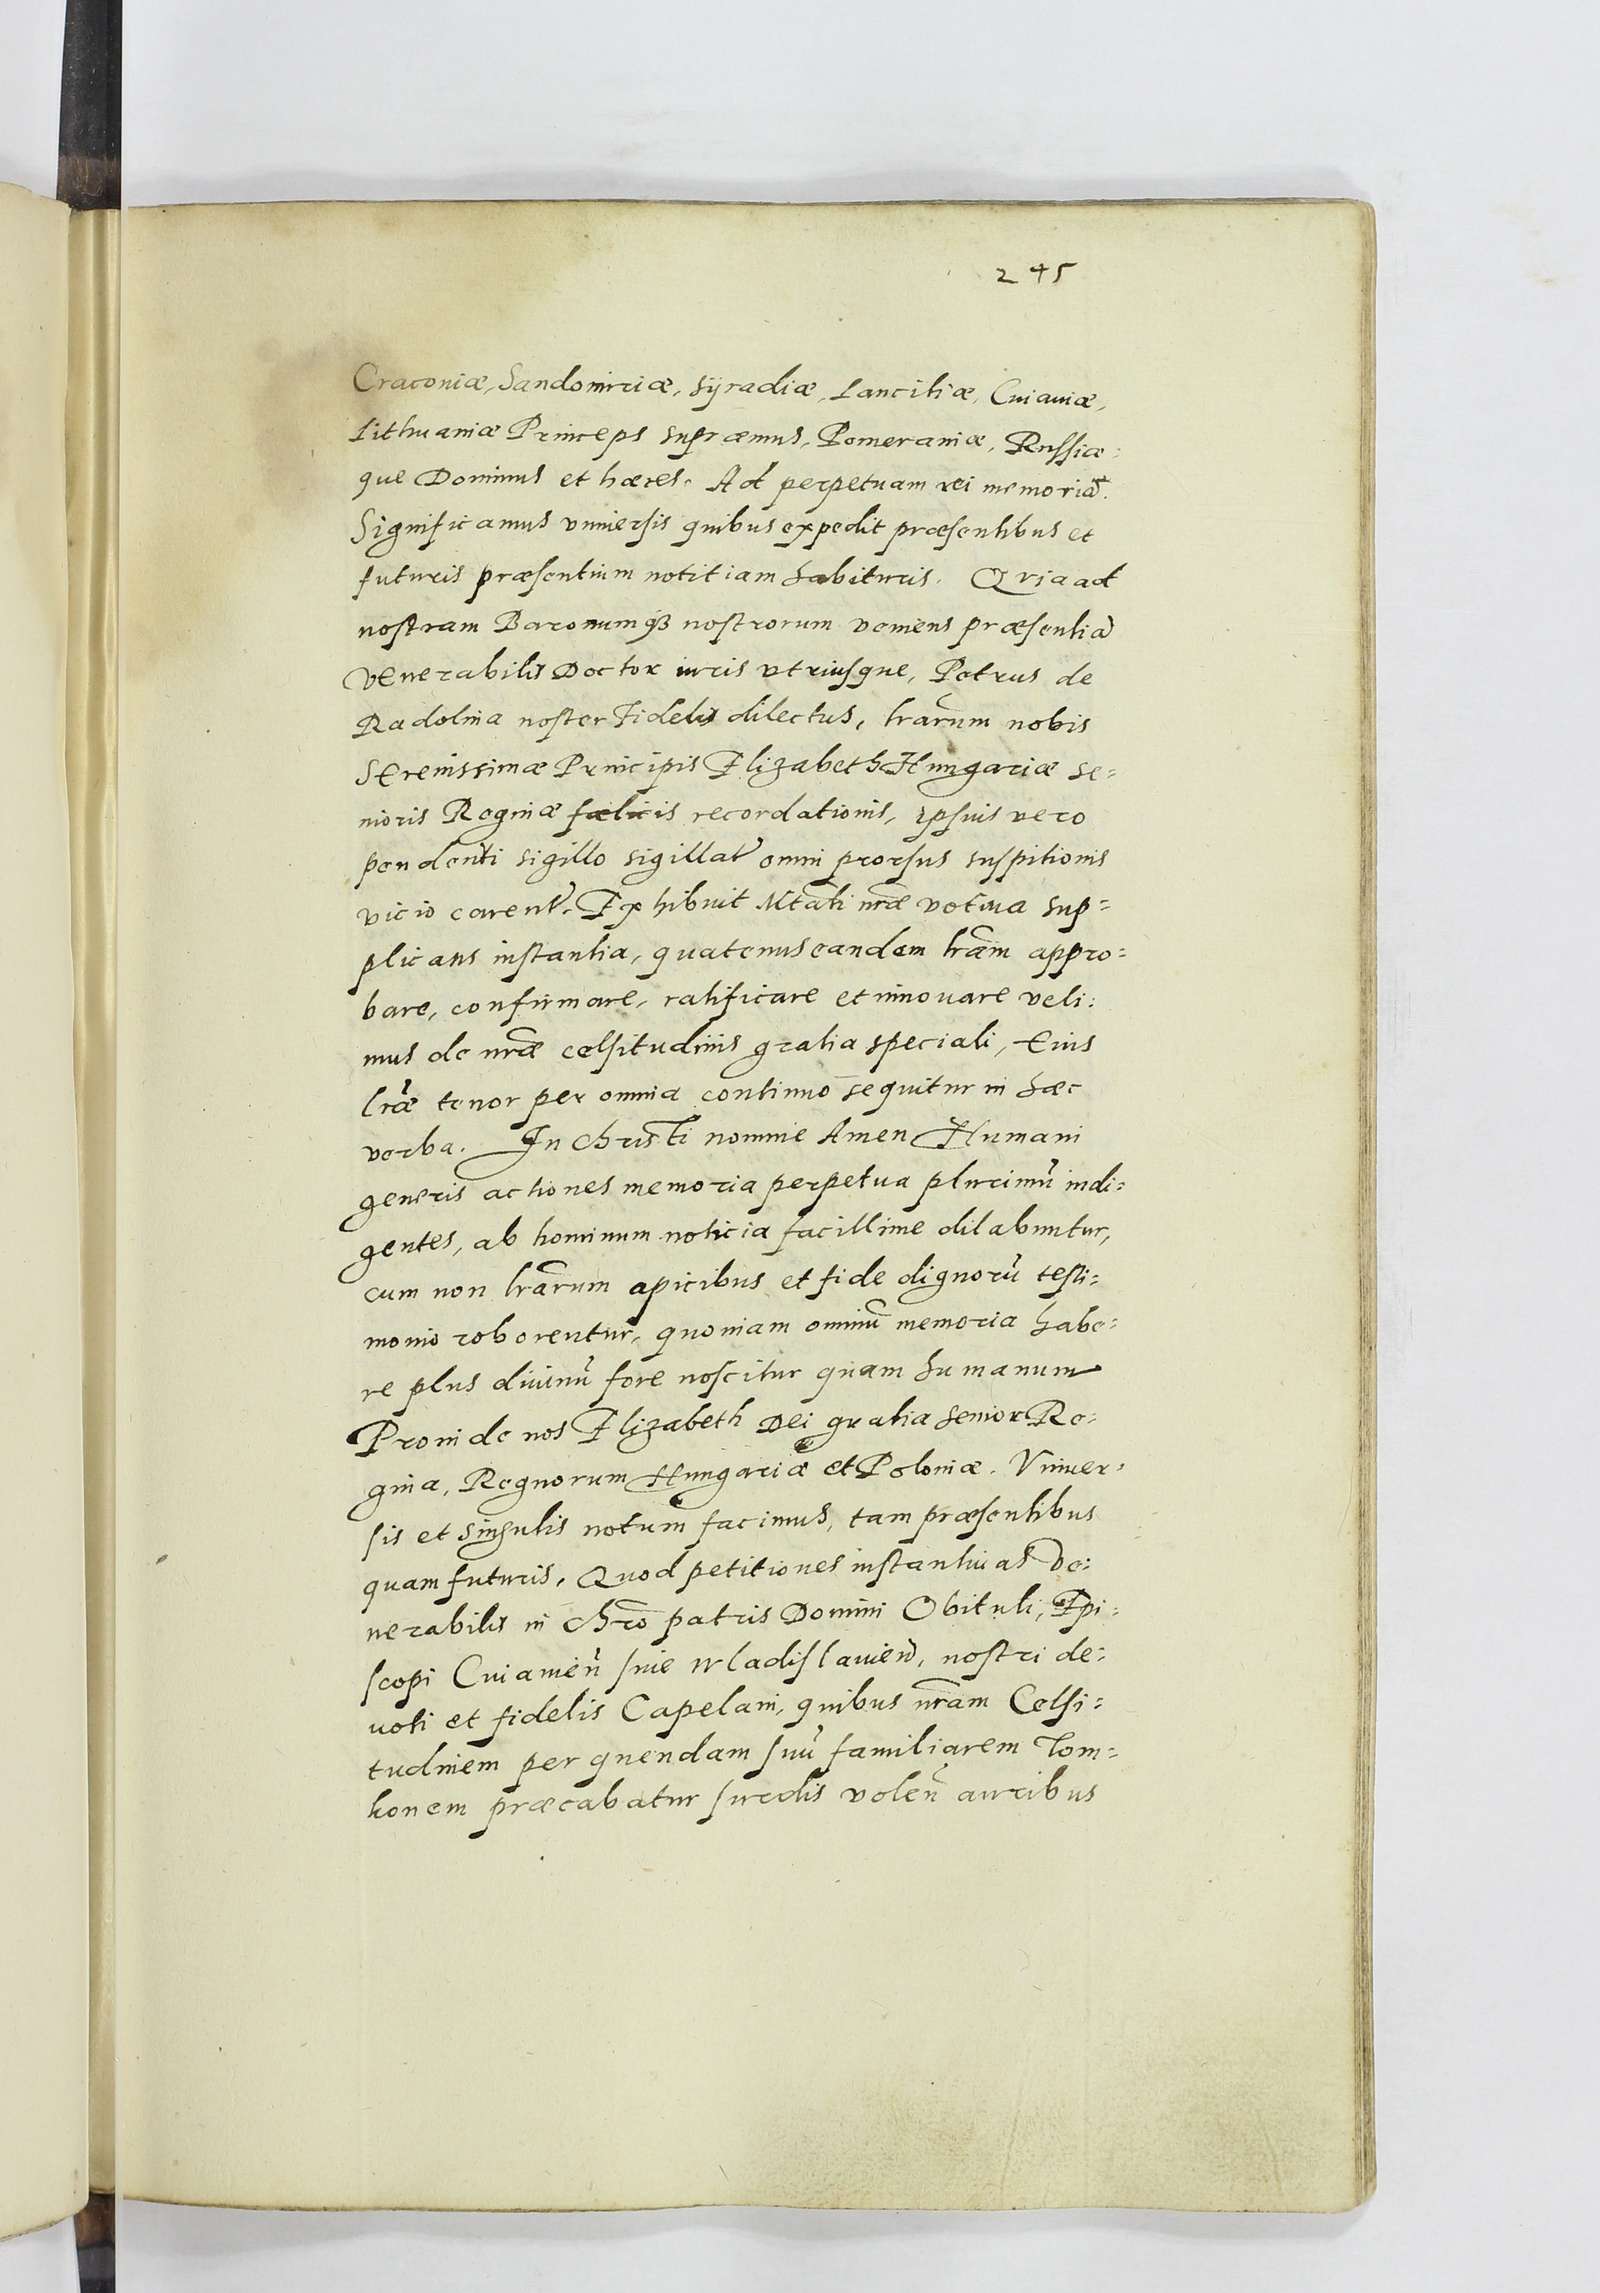 245
Craconiæ, Sandomiriæ, Syradiæ, Lancitiæ, Cuiauiæ,
Lithuaniæ Princeps supræmus, Pomeraniæ, Russiæ=
que Dominus et hæres. Ad perpetuam rei memoriā.
Significamus vniuersis quibus expedit præsentibus et
futuris præsentium notitiam habituris. Qvia ad
nostram Baronumqꝫ nostrorum veniens præsentiā
venerabilis Doctor iuris vtriusque, Petrus de
Radolina noster Fidelis dilectus, lrārum nobis
Serenissimæ Principis Elizabeth Hungariæ Se=
nioris Reginæ fælicis recordationis, ipsius vero
pendenti sigillo sigillat̄ omni prorsus suspitionis
vicio carent̄. Exhibuit Mtāti nrāe votiua sup=
plicans instantia, quatenus eandem lrām appro=
bare, confirmare, ratificare et innouare veli=
mus de nrāe celsitudinis gratia speciali, Eius
lrāe tenor per omnia continuo sequitur in hæc
verba. In Christi nomine Amen Humani
generis actiones memoria perpetua plurimū indi=
gentes, ab hominum noticia facillime dilabuntur,
cum non lrārum apicibus et fide dignorū testi=
monio roborentur, quoniam omniū memoria habe=
re plus diuinū fore noscitur quam humanum
Proinde nos Elizabeth Dei gratia Senior Re=
gina, Regnorum Hungariæ et Poloniæ. Vniuer=
sis et singulis notum facimus, tam præsentibus
quam futuris, Quod petitiones instantiuas Ve=
nerabilis in Chrō patris Domini Obituli, Epi=
scopi Cuiauien̄ siue Wladislauien̄, nostri de=
uoti et fidelis Capelani, quibus nrām Celsi=
tudinem per quendam suū familiarem Tom=
konem præcabatur surdis volen̄ auribus